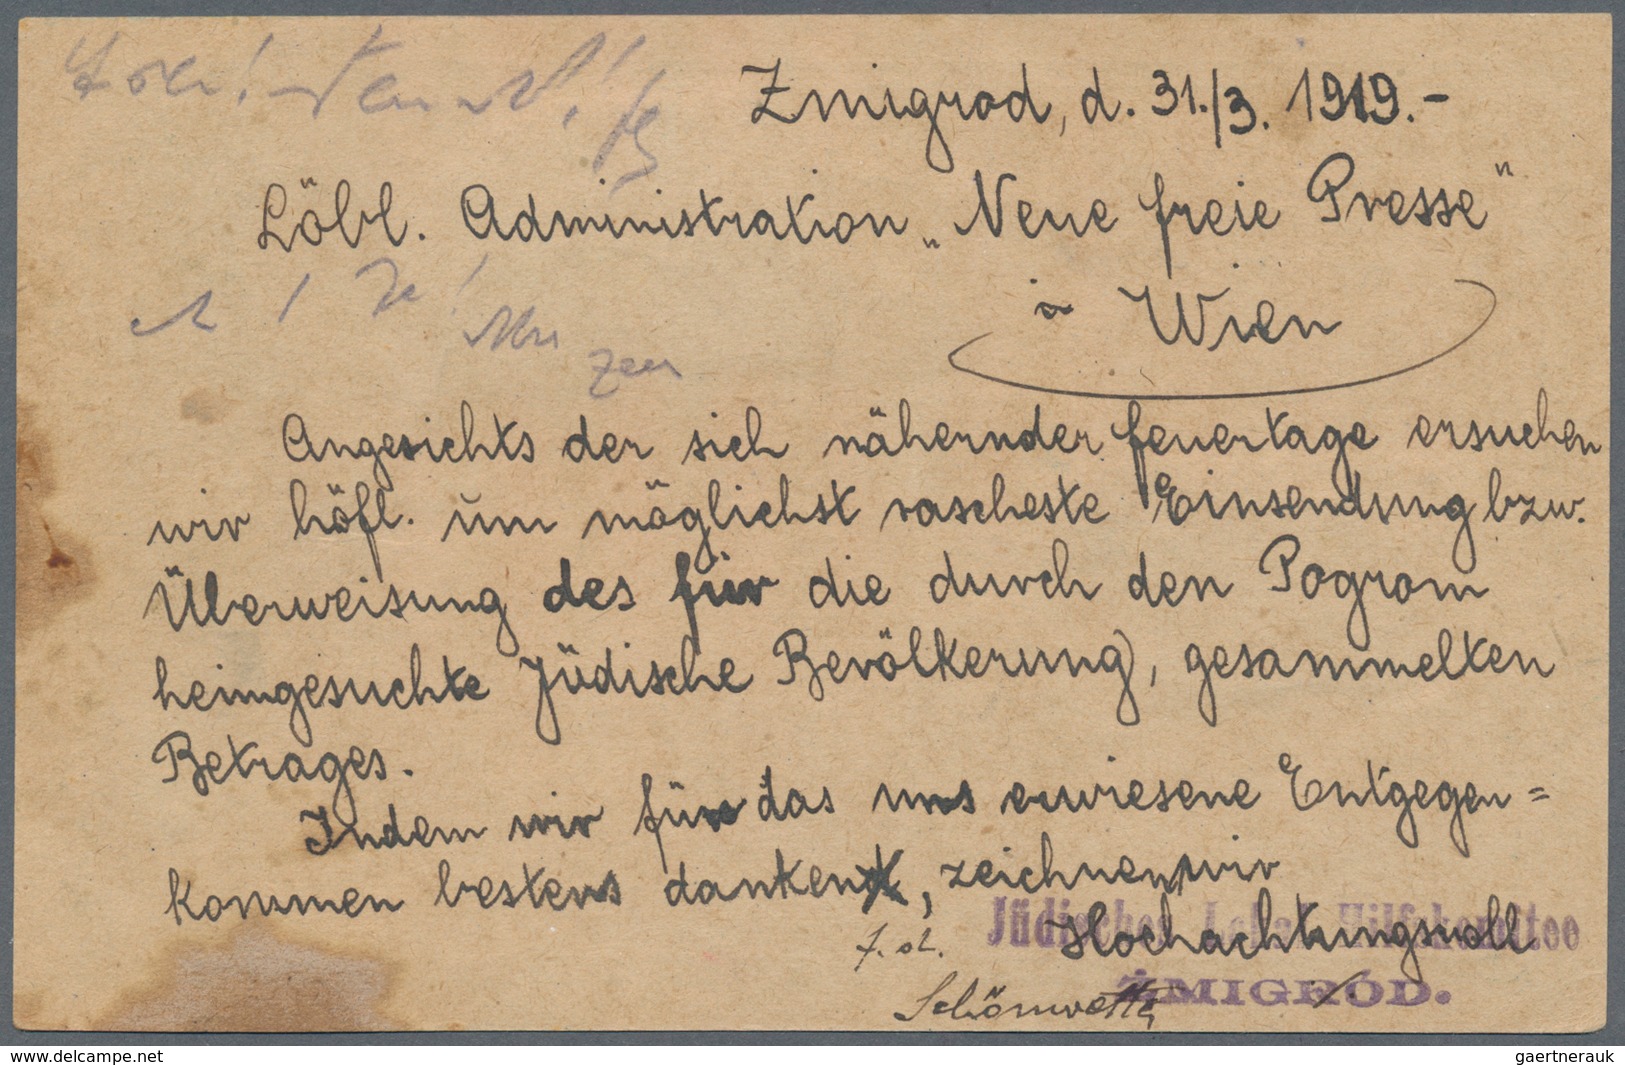 Zmigrod, d. 31./3. 1919.-
Löbl. Administration „Neue freie Presse"
in Wien
Angesichts der sich nähernder feuertage ersuchen
wir höfl. um möglichst rascheste Einsendung bzw.
Überweisung des für die durch den Pogrom
heimgesuchte Jüdische Bevölkerung, gesammelten
Betrages.
Indem wir für das uns erwiesene Entgegen=
kommen bestens danken, zeichnen wir
Hochachtungsvoll
Jüdisches Lokal-Hilfskomittee
ŻMIGRÓD.
www.delcampe.net
gaertnerauk